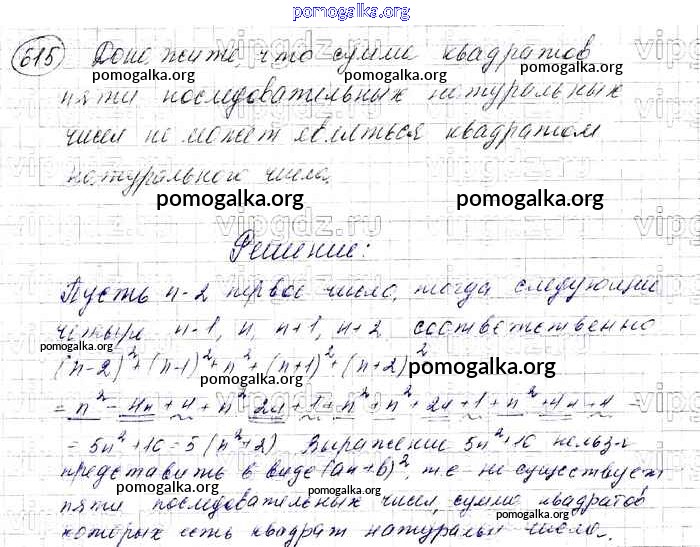 pomogalka.org
615 Докажите, что сумма квадратов
pomogalka.org pomogalka.org
пяти последовательных натуральных
vipgdz.ru
чисел не может являться квадратом
натурального числа.
pomogalka.org pomogalka.org
vipgdz.ru
Решение:
Пусть n-2 первое число, тогда следующие
четыре n-1, n, n+1, n+2 соответственно
pomogalka.org pomogalka.org
(n-2)²+(n-1)²+n²+(n+1)²+(n+2)²
pomogalka.org pomogalka.org
= n² - 4n + 4 + n² 2n + 1 + n² + n² + 2n + 1 + n² + 4n + 4 =
= 5n²+10 = 5(n²+2) Выражение 5n²+10 нельзя
pomogalka.org
представить в виде (an+b)², т.е. не существует
pomogalka.org pomogalka.org pomogalka.org
пяти последовательных чисел, сумма квадратов
которых есть квадрат натуральн числа.
pomogalka.org pomogalka.org